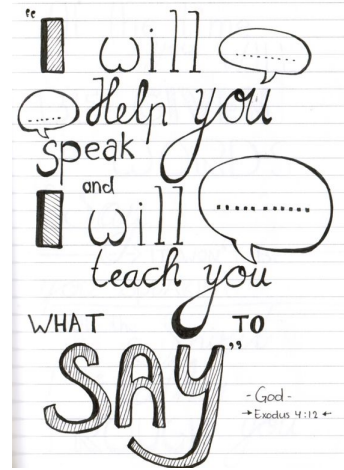 "I will
Help you
speak
and
I will
teach you
WHAT TO
SAY"
- God -
→ Exodus 4:12 ←